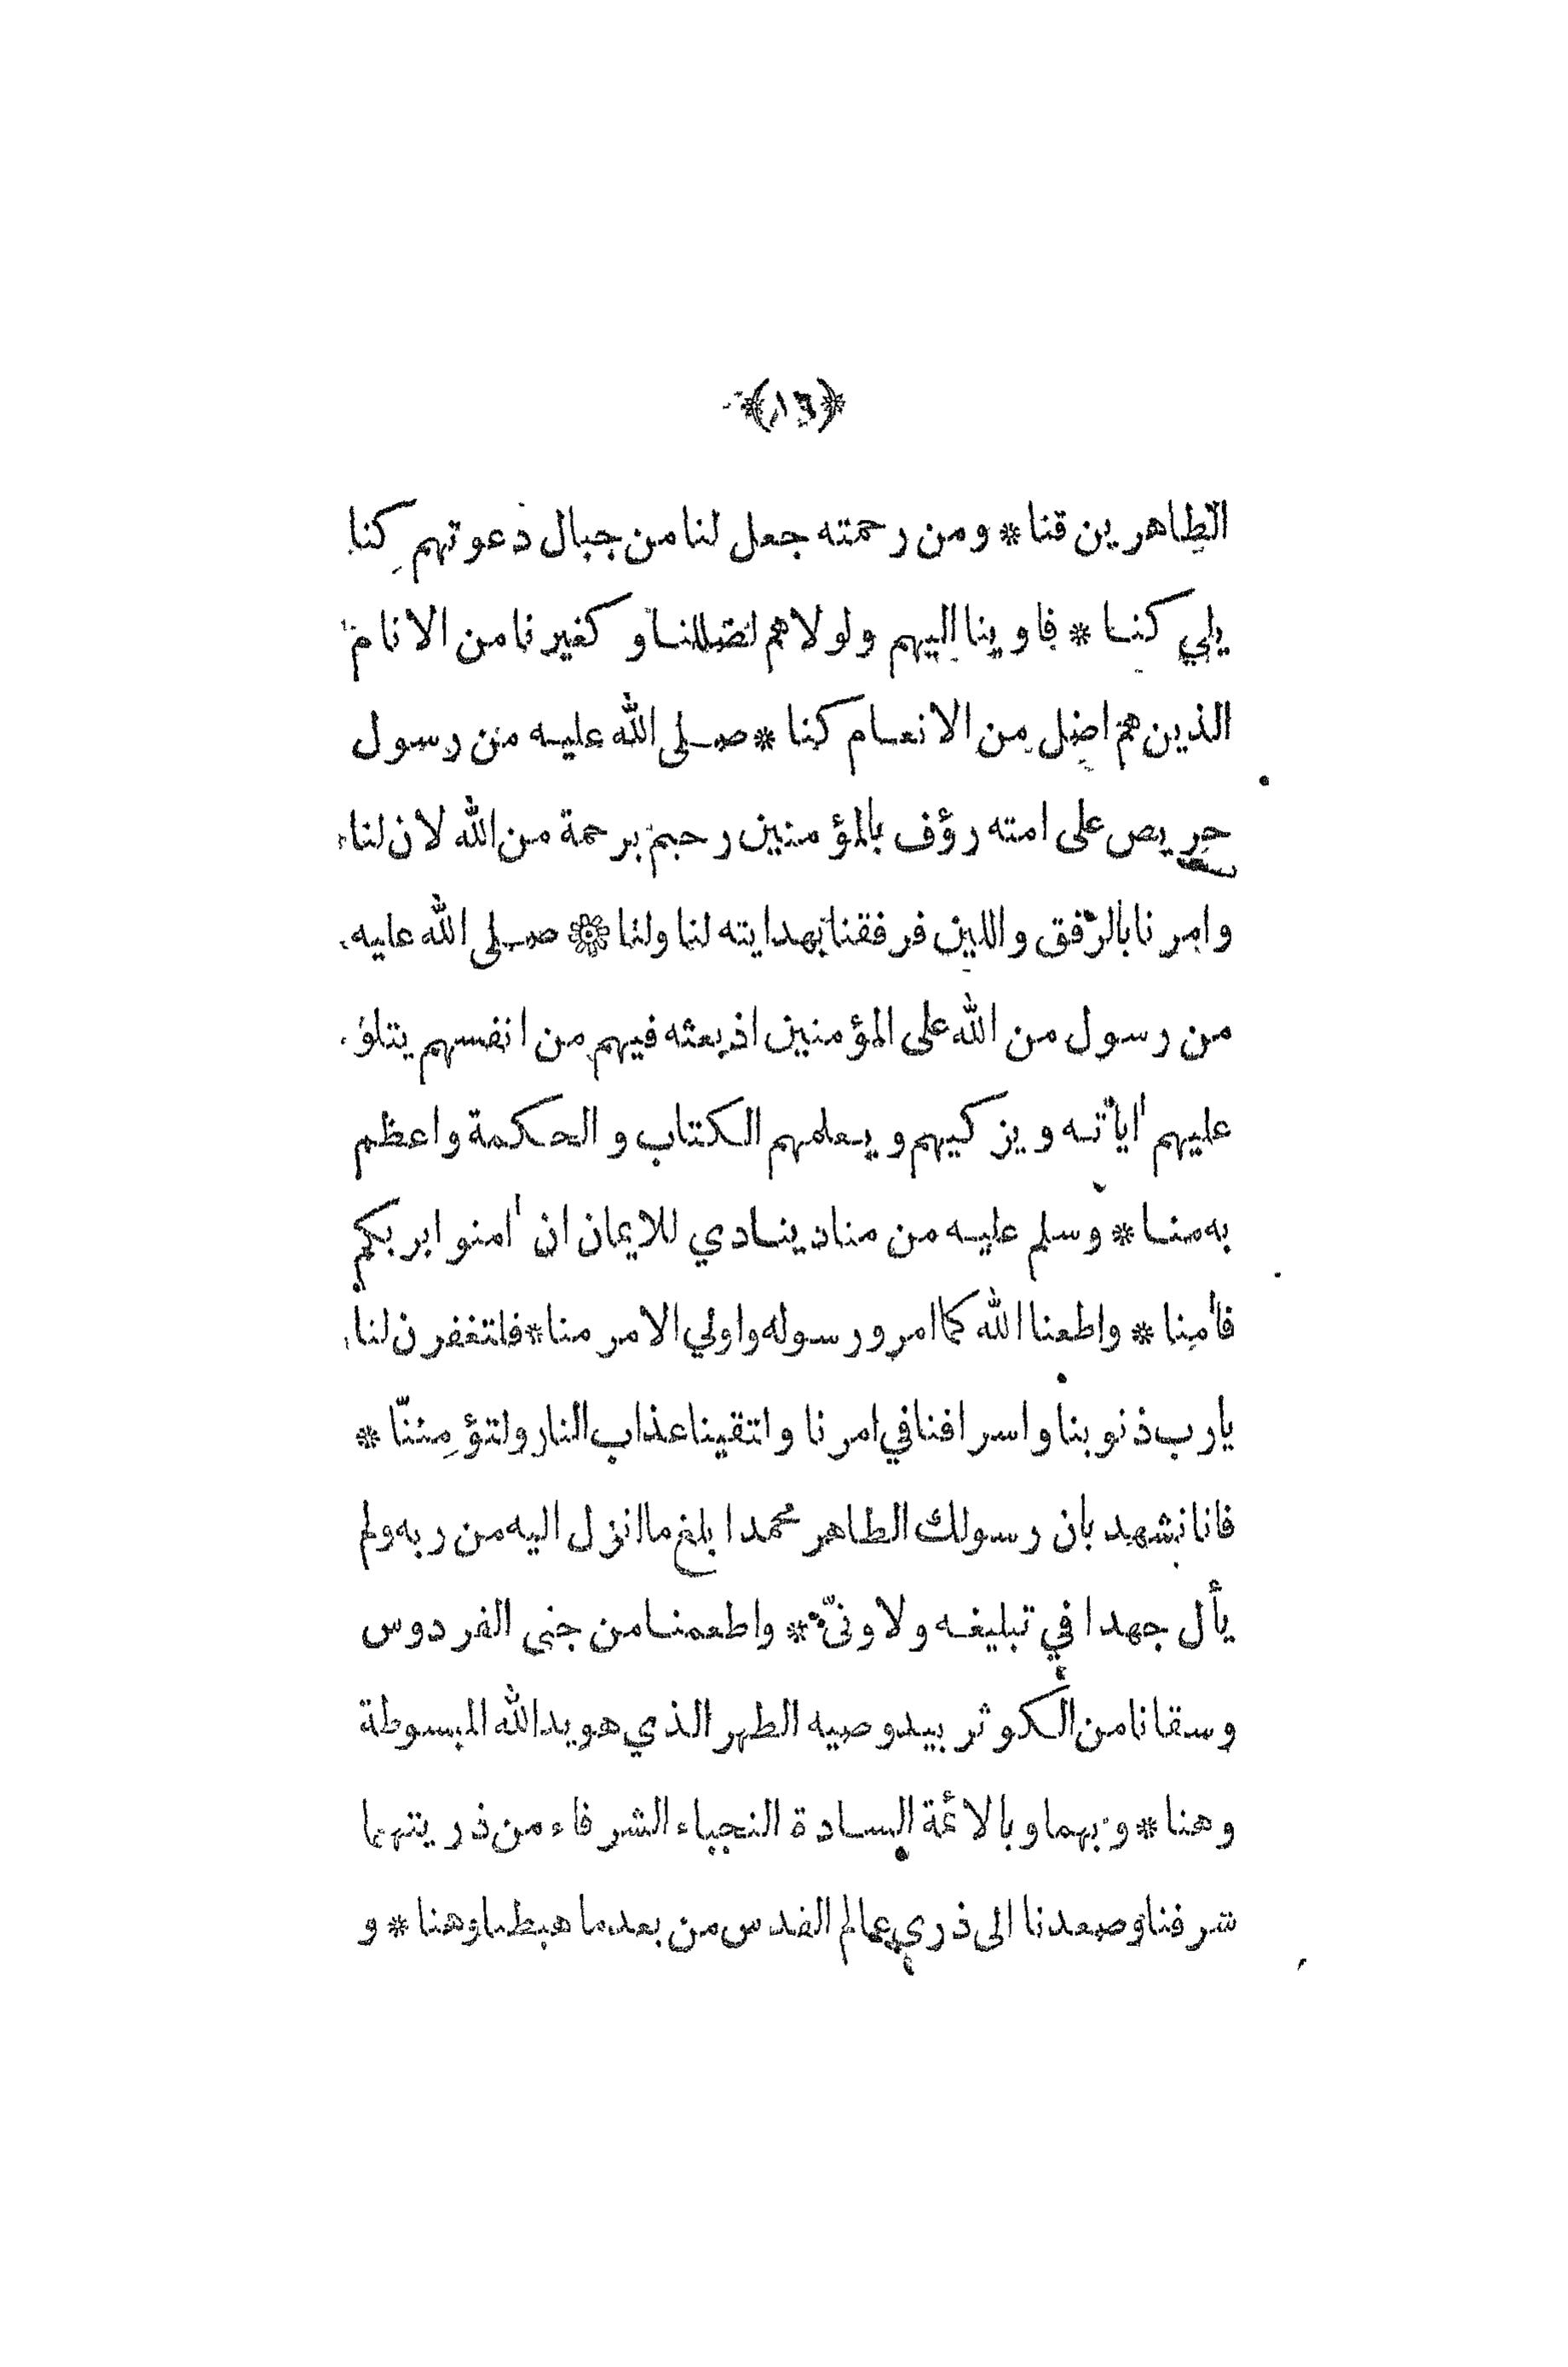 الطاهرين قنا * ومن رحمته جعل لنا من جبال دعوتهم كنا
يلي كنا * فاوينا اليهم ولولاهم لضللنا وكغيرنا من الانام
الذين هم اضل من الانعام كنا * صلى الله عليه من رسول
حريص على امته رؤف بالمؤمنين رحيم برحمة من الله لان لنا
وامرنا بالرّفق واللين فرفقنا بهدايته لنا ولنا * صلى الله عليه
من رسول من الله على المؤمنين اذ بعثه فيهم من انفسهم يتلو
عليهم اٰياته ويزكيهم ويعلمهم الكتاب والحكمة واعظم
به منا * وسلم عليه من مناد ينادي للايمان ان اٰمنوا بربكم
فاٰمنا * واطعنا الله كما امر ورسوله واولي الامر منا * فلتغفرن لنا
يارب ذنوبنا واسرافنا في امرنا ولتقينا عذاب النار ولتؤمِننّا *
فانا نشهد بان رسولك الطاهر محمدا بلغ ما انزل اليه من ربه ولم
يأل جهدا في تبليغه ولا ونىّ * واطعمنا من جنى الفردوس
وسقانا من الكوثر بيد وصيه الطهر الذي هو يد الله المبسوطة
وهنا * وبهما وبالائمة السادة النجباء الشرفاء من ذريتهما
شرفنا وصعدنا الى ذرى عالم القدس من بعد ما هبطنا وهنا * و